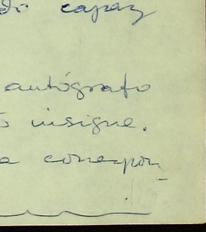 capaz
autógrafo
insigne.
a correspon_